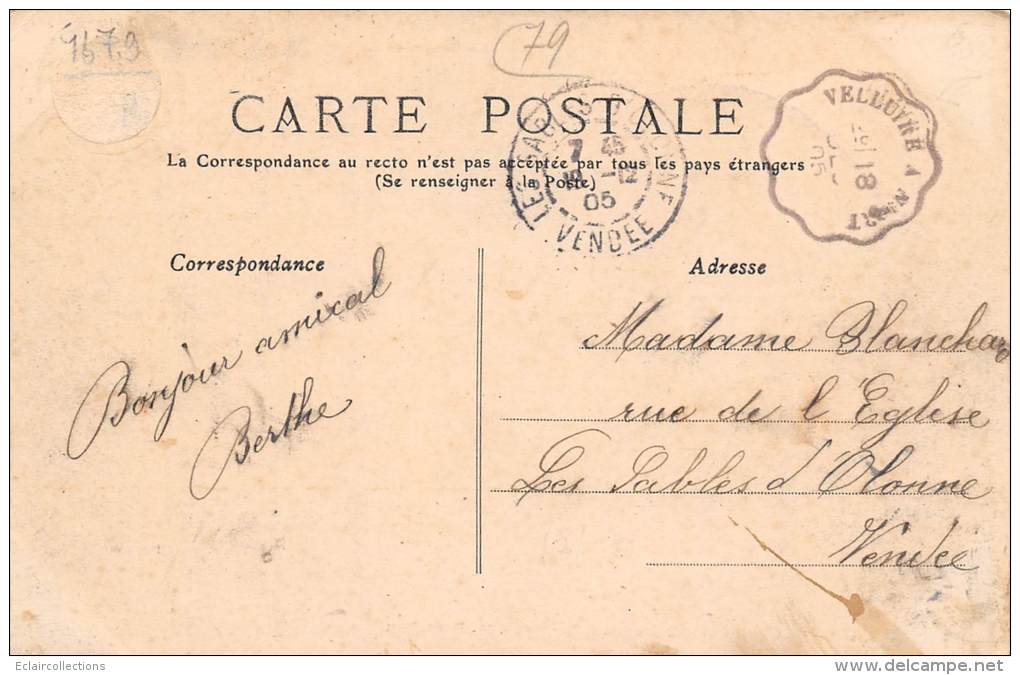 1679
79
CARTE POSTALE
La Correspondance au recto n'est pas acceptée par tous les pays étrangers
(Se renseigner à la Poste)
VENDEE
05
VELLUIRE A NIORT
18
05
Correspondance
Adresse
Bonjour amical
Berthe
Madame Blanchard
rue de l'Eglise
Les Sables d'Olonne
Vendée
Eclaircollections
delcampe.net